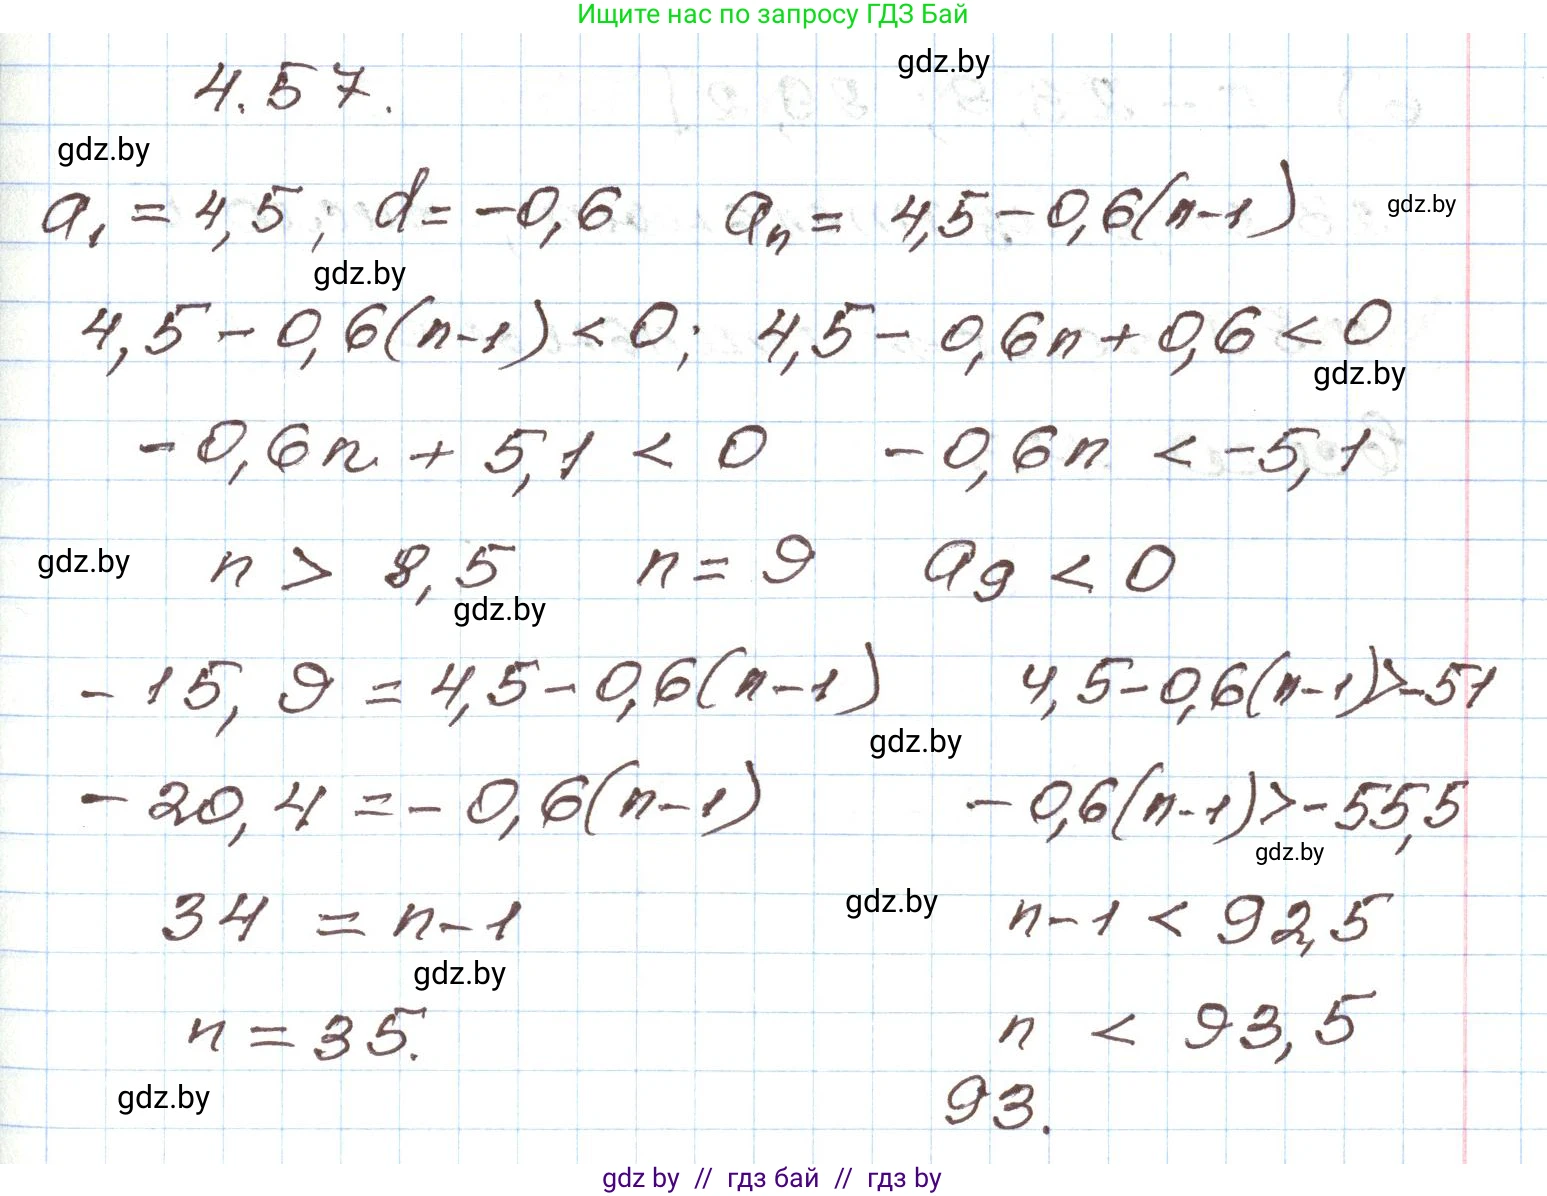 Ищите нас по запросу ГДЗ Бай
gdz.by
4.57.
gdz.by
a₁ = 4,5; d = -0,6 aₙ = 4,5 - 0,6(n-1)
gdz.by
gdz.by
4,5 - 0,6(n-1) < 0; 4,5 - 0,6n + 0,6 < 0
gdz.by
-0,6n + 5,1 < 0 -0,6n < -5,1
gdz.by
n > 8,5 n = 9 a₉ < 0
gdz.by
-15,9 = 4,5 - 0,6(n-1) 4,5 - 0,6(n-1) > -51
gdz.by
-20,4 = -0,6(n-1) -0,6(n-1) > -55,5
gdz.by
gdz.by
34 = n-1 n-1 < 92,5
gdz.by
n = 35. n < 93,5
gdz.by
93.
gdz by // гдз бай // гдз by